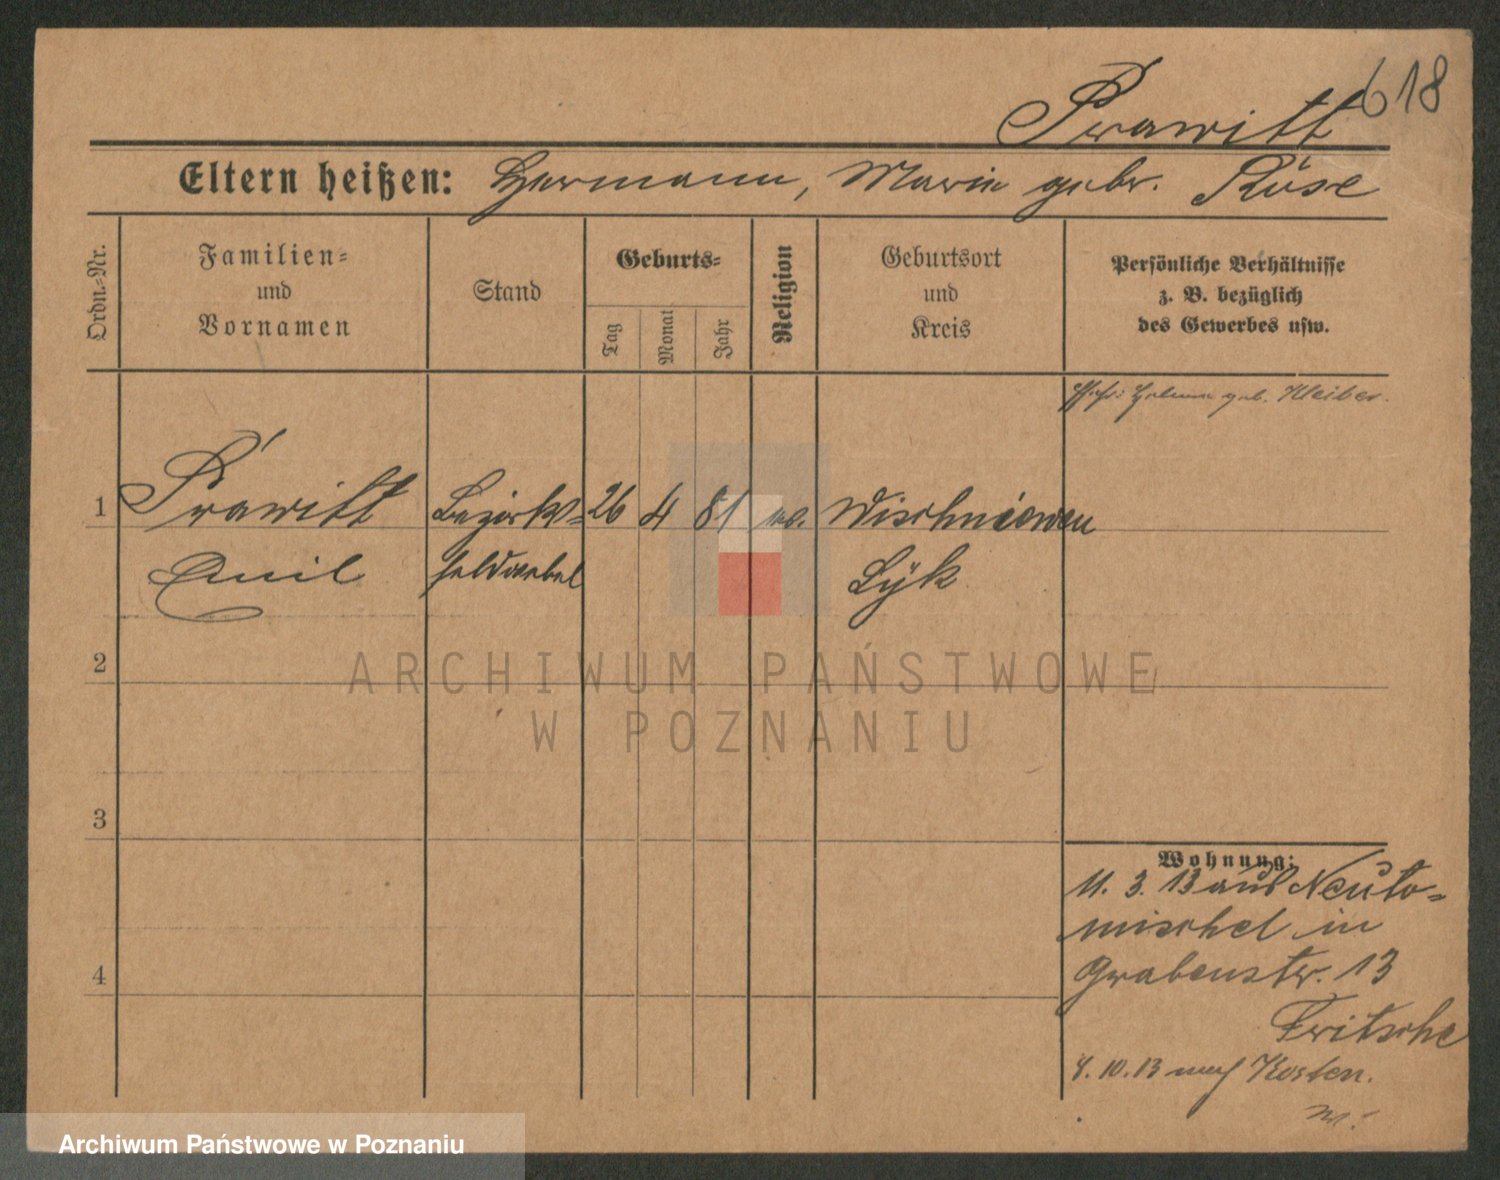 618
Prawitt
Eltern heißen: Hermann, Marie gebr. Rüse
Ordn.-Nr.
Familien-
und
Vornamen
Stand
Geburts-
Tag
Monat
Jahr
Religion
Geburtsort
und
Kreis
Persönliche Verhältnisse
z. B. bezüglich
des Gewerbes usw.
geb. Kleiber.
1 Prawitt Bezirks- 26 4 81 Wischniewen
Emil feldwebel Lyk
2
3
4
Wohnung:
11. 3. 13 aus Neuto-
mischel in
Grabenstr. 13
Fritsche
10. 13 nach Kosten.
ARCHIWUM PAŃSTWOWE
W POZNANIU
Archiwum Państwowe w Poznaniu